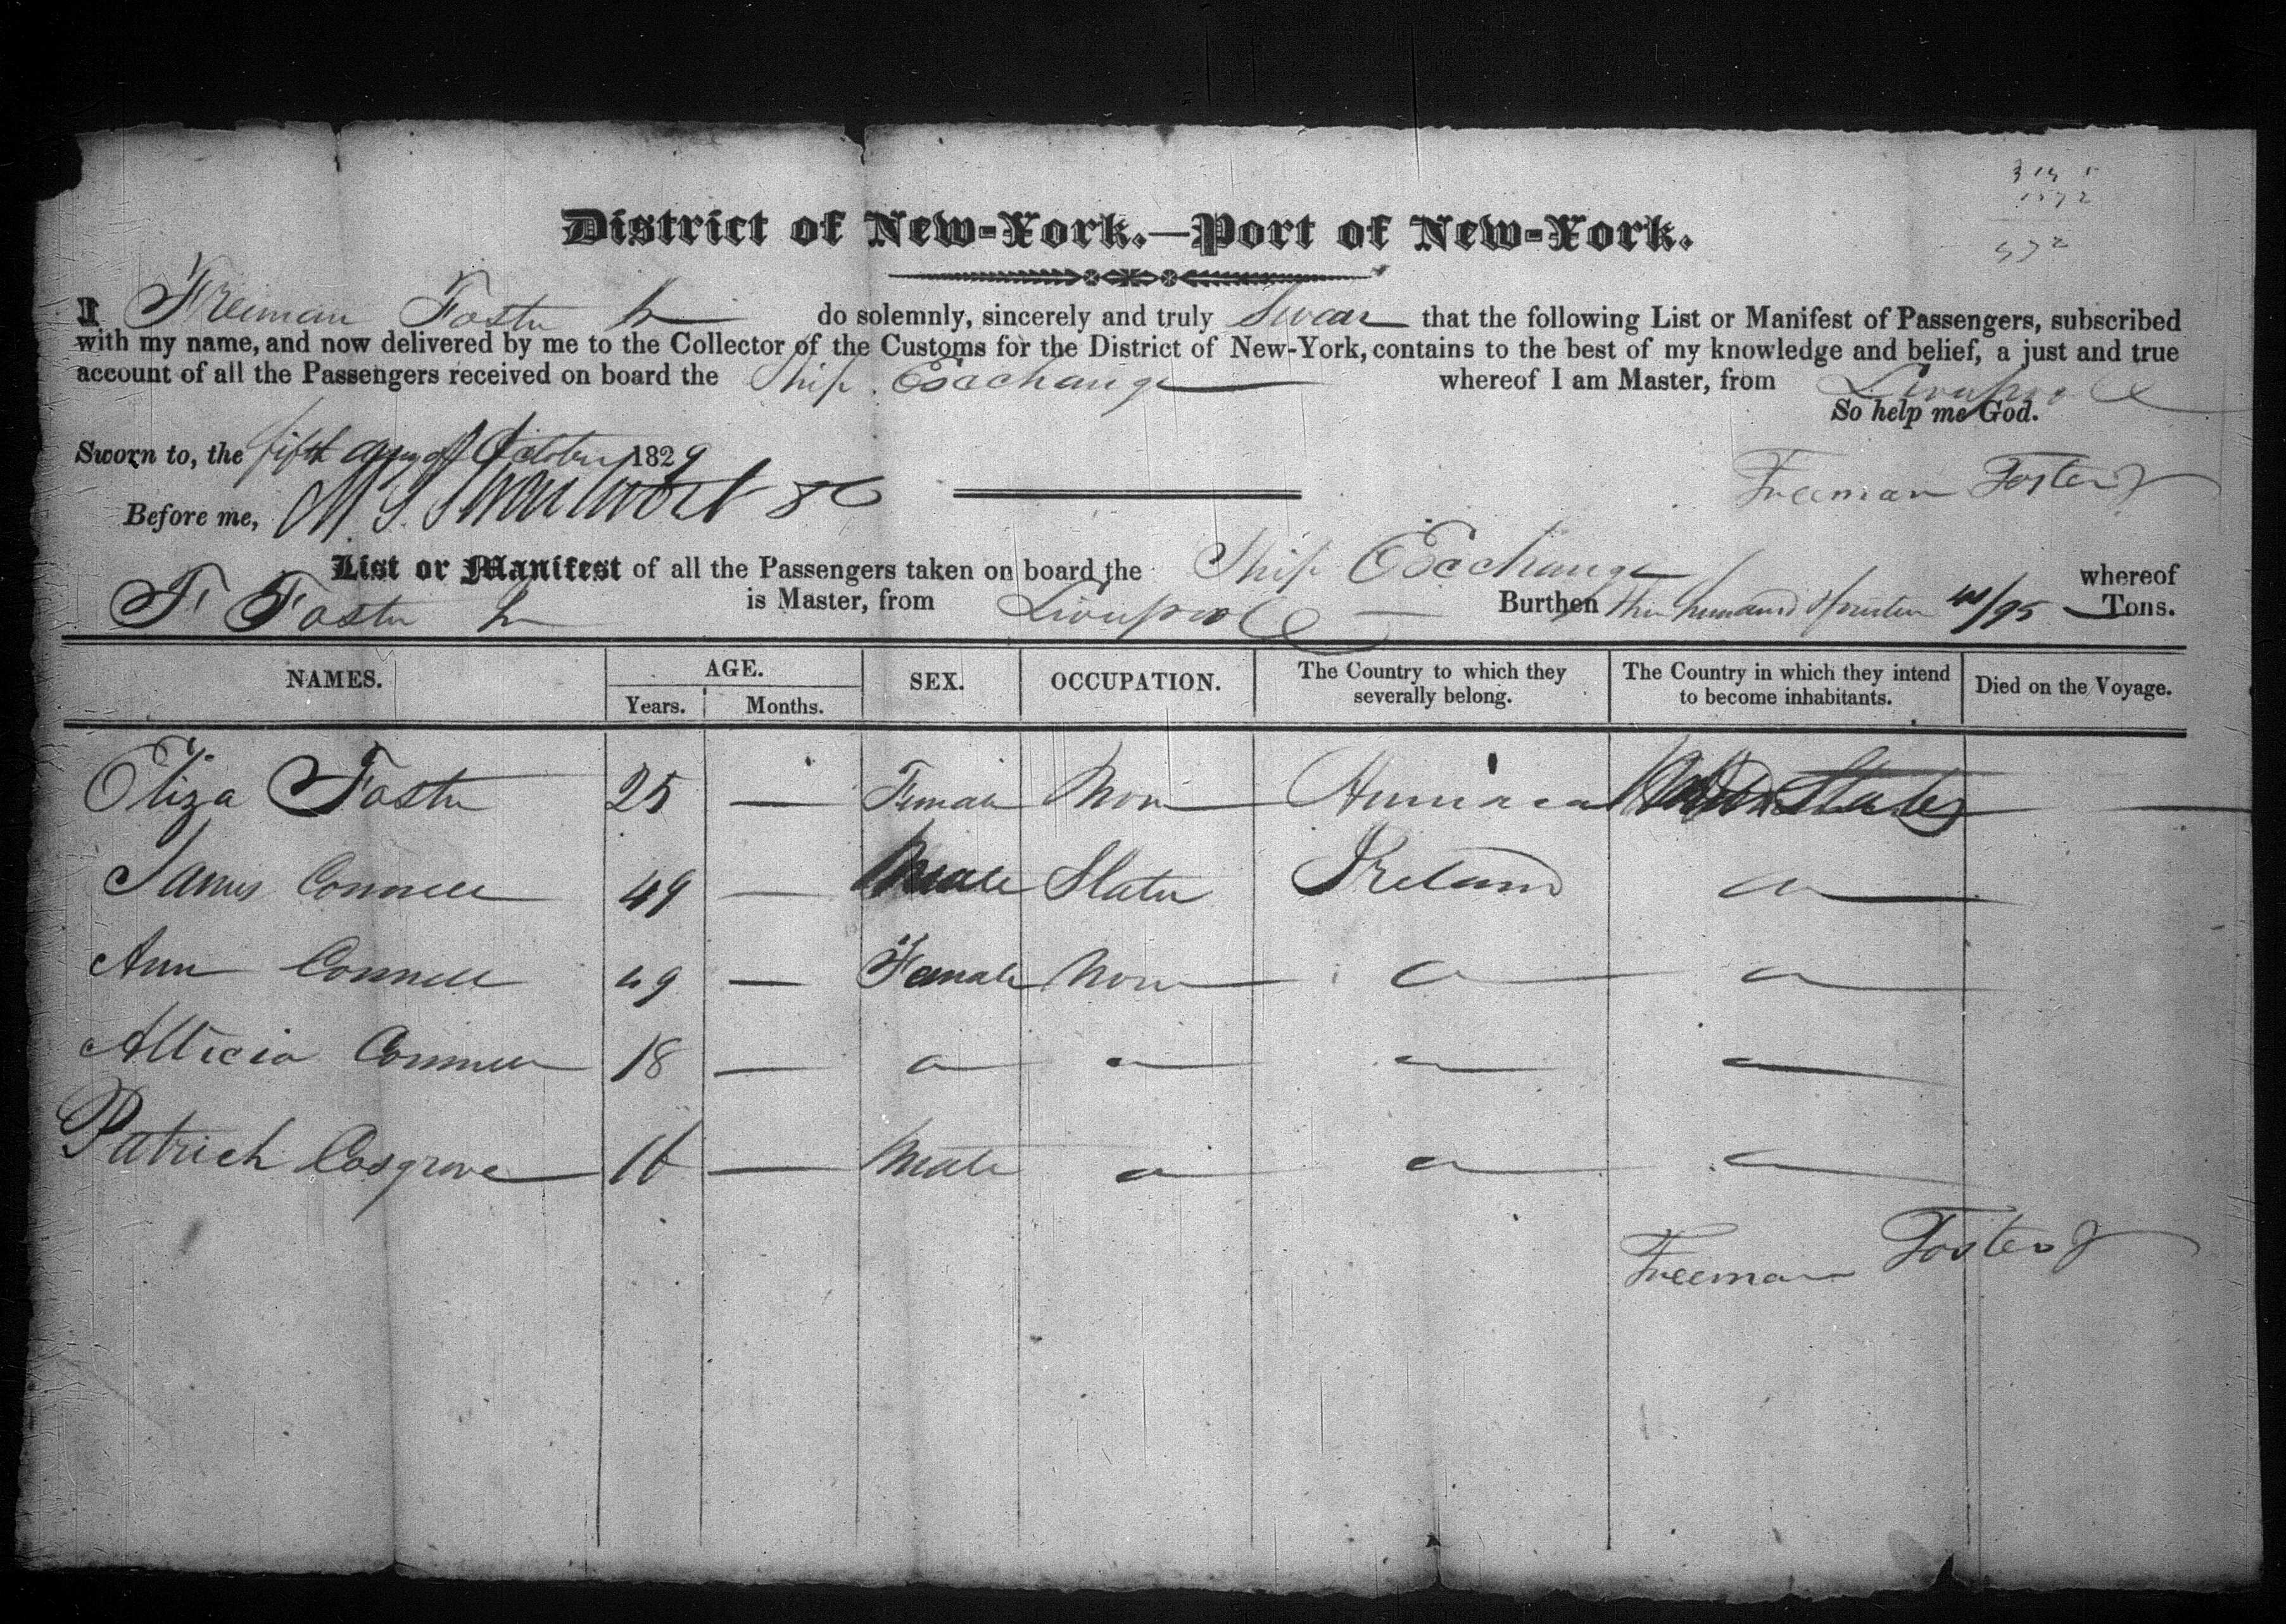 District of New-York.—Port of New-York.
I Freeman Foster Jr do solemnly, sincerely and truly Swear that the following List or Manifest of Passengers, subscribed
with my name, and now delivered by me to the Collector of the Customs for the District of New-York, contains to the best of my knowledge and belief, a just and true
account of all the Passengers received on board the Ship Exchange whereof I am Master, from Liverpool
So help me God.
Sworn to, the fifth day of October 1829
Freeman Foster Jr
Before me,
List or Manifest of all the Passengers taken on board the Ship Exchange whereof
F. Foster Jr is Master, from Liverpool Burthen three hundred & fourteen /95 Tons.
NAMES. AGE. SEX. OCCUPATION. The Country to which they severally belong. The Country in which they intend to become inhabitants. Died on the Voyage.
Years. Months.
Eliza Foster 25 — Female None America United States
James Connell 49 — Male Slater Ireland
Ann Connell 49 — Female None
Allicia Connell 18 —
Patrick Cosgrove 16 — Male
Freeman Foster Jr